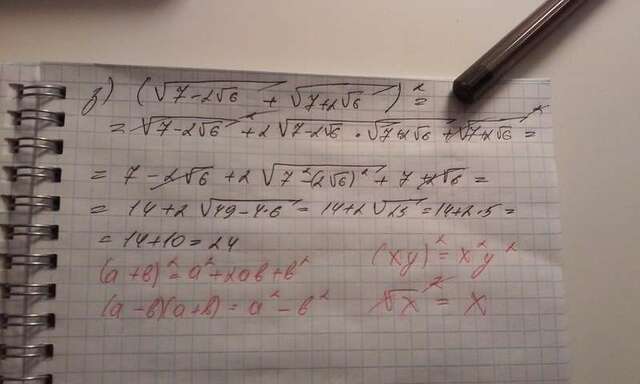 з) (√(7-2√6) + √(7+2√6))² =
= √(7-2√6)² + 2√(7-2√6) · √(7+2√6) + √(7+2√6)² =
= 7-2√6 + 2√(7²-(2√6)²) + 7+2√6 =
= 14+2√(49-4·6) = 14+2√25 = 14+2·5 =
= 14+10 = 24
(xy)² = x²y²
(a+b)² = a²+2ab+b²
(a-b)(a+b) = a²-b²
√x² = x